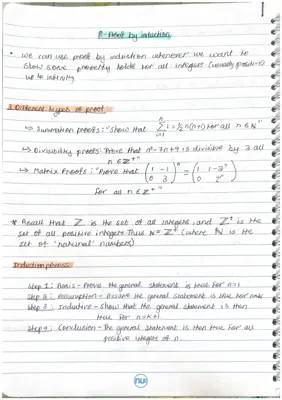 8 - Proof by induction
• we can use proof by induction whenever we want to
show some property holds for all integers (usually positive)
up to infinity
3 Different types of proof
↳ Summation proofs: "Show that n Σ i = ½ n(n+1) for all n ∈ N"
↳ Divisibility proofs: Prove that n³-7n+9 is divisible by 3 all
n ∈ Z⁺
↳ Matrix Proofs: "Prove that (1 -1 / 0 3)ⁿ = (1 1-2ⁿ / 0 2ⁿ)
for all n ∈ Z⁺ "
* Recall that Z is the set of all integers, and Z⁺ is the
set of all positive integers. Thus N = Z⁺ (where N is the
set of 'natural' numbers)
Induction process
Step 1: Basis - Prove the general statement is true for n=1
Step 2: Assumption - Assume the general statement is true for n=k
Step 3: Inductive - Show that the general statement is then
true for n=k+1
Step 4: Conclusion - The general statement is then true for all
positive integers of n.
nu